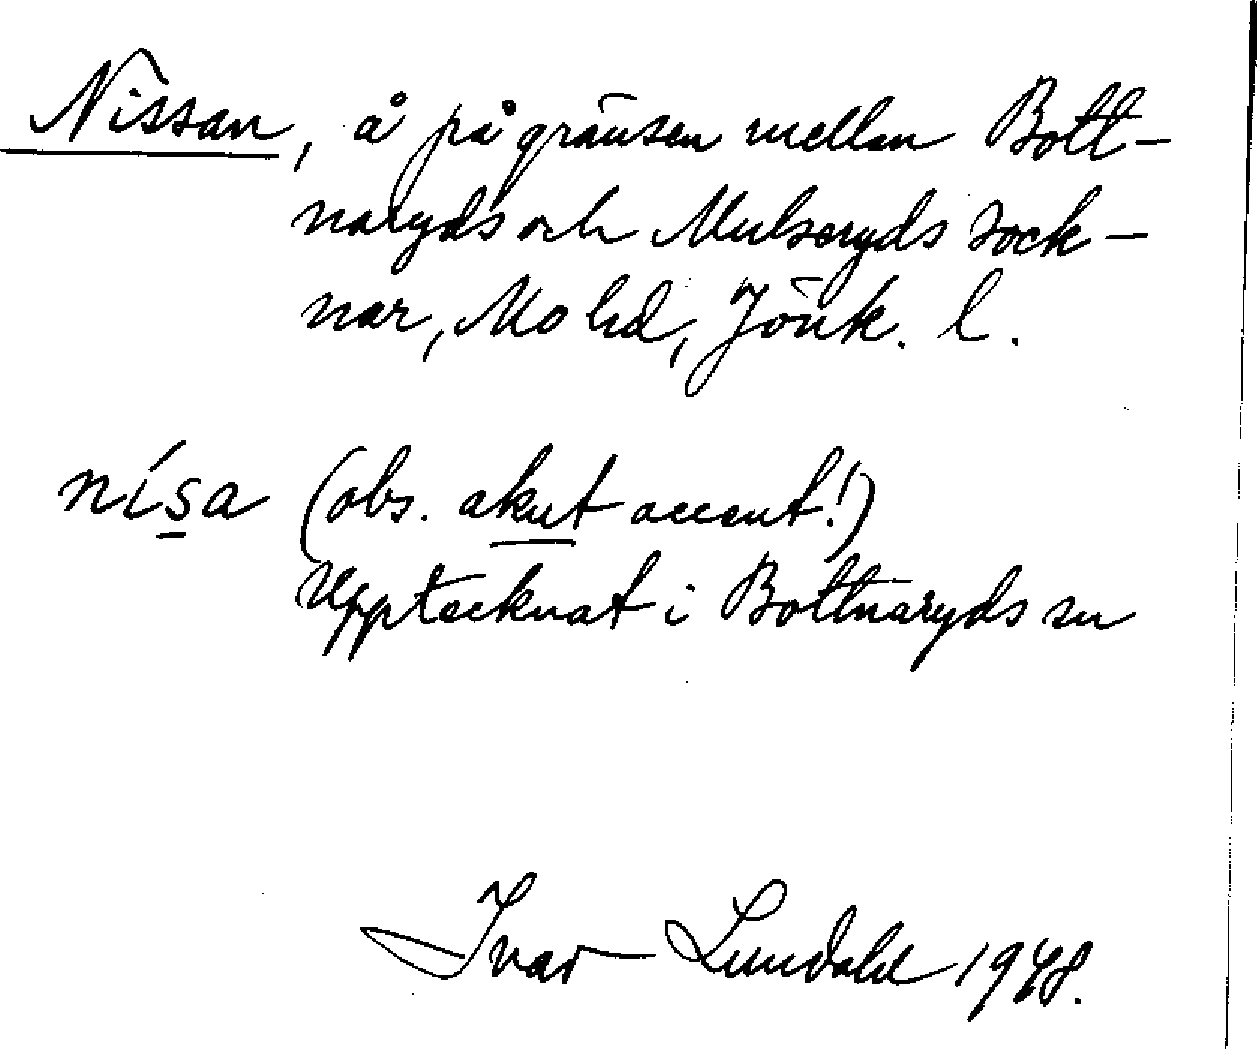 Nissan, å på gränsen mellan Bott-
naryds och Mulseryds sock-
nar, Mo hd, Jönk. l.
nísa (obs. akut accent!)
Upptecknat i Bottnaryds sn
Ivar Lundahl 1948.